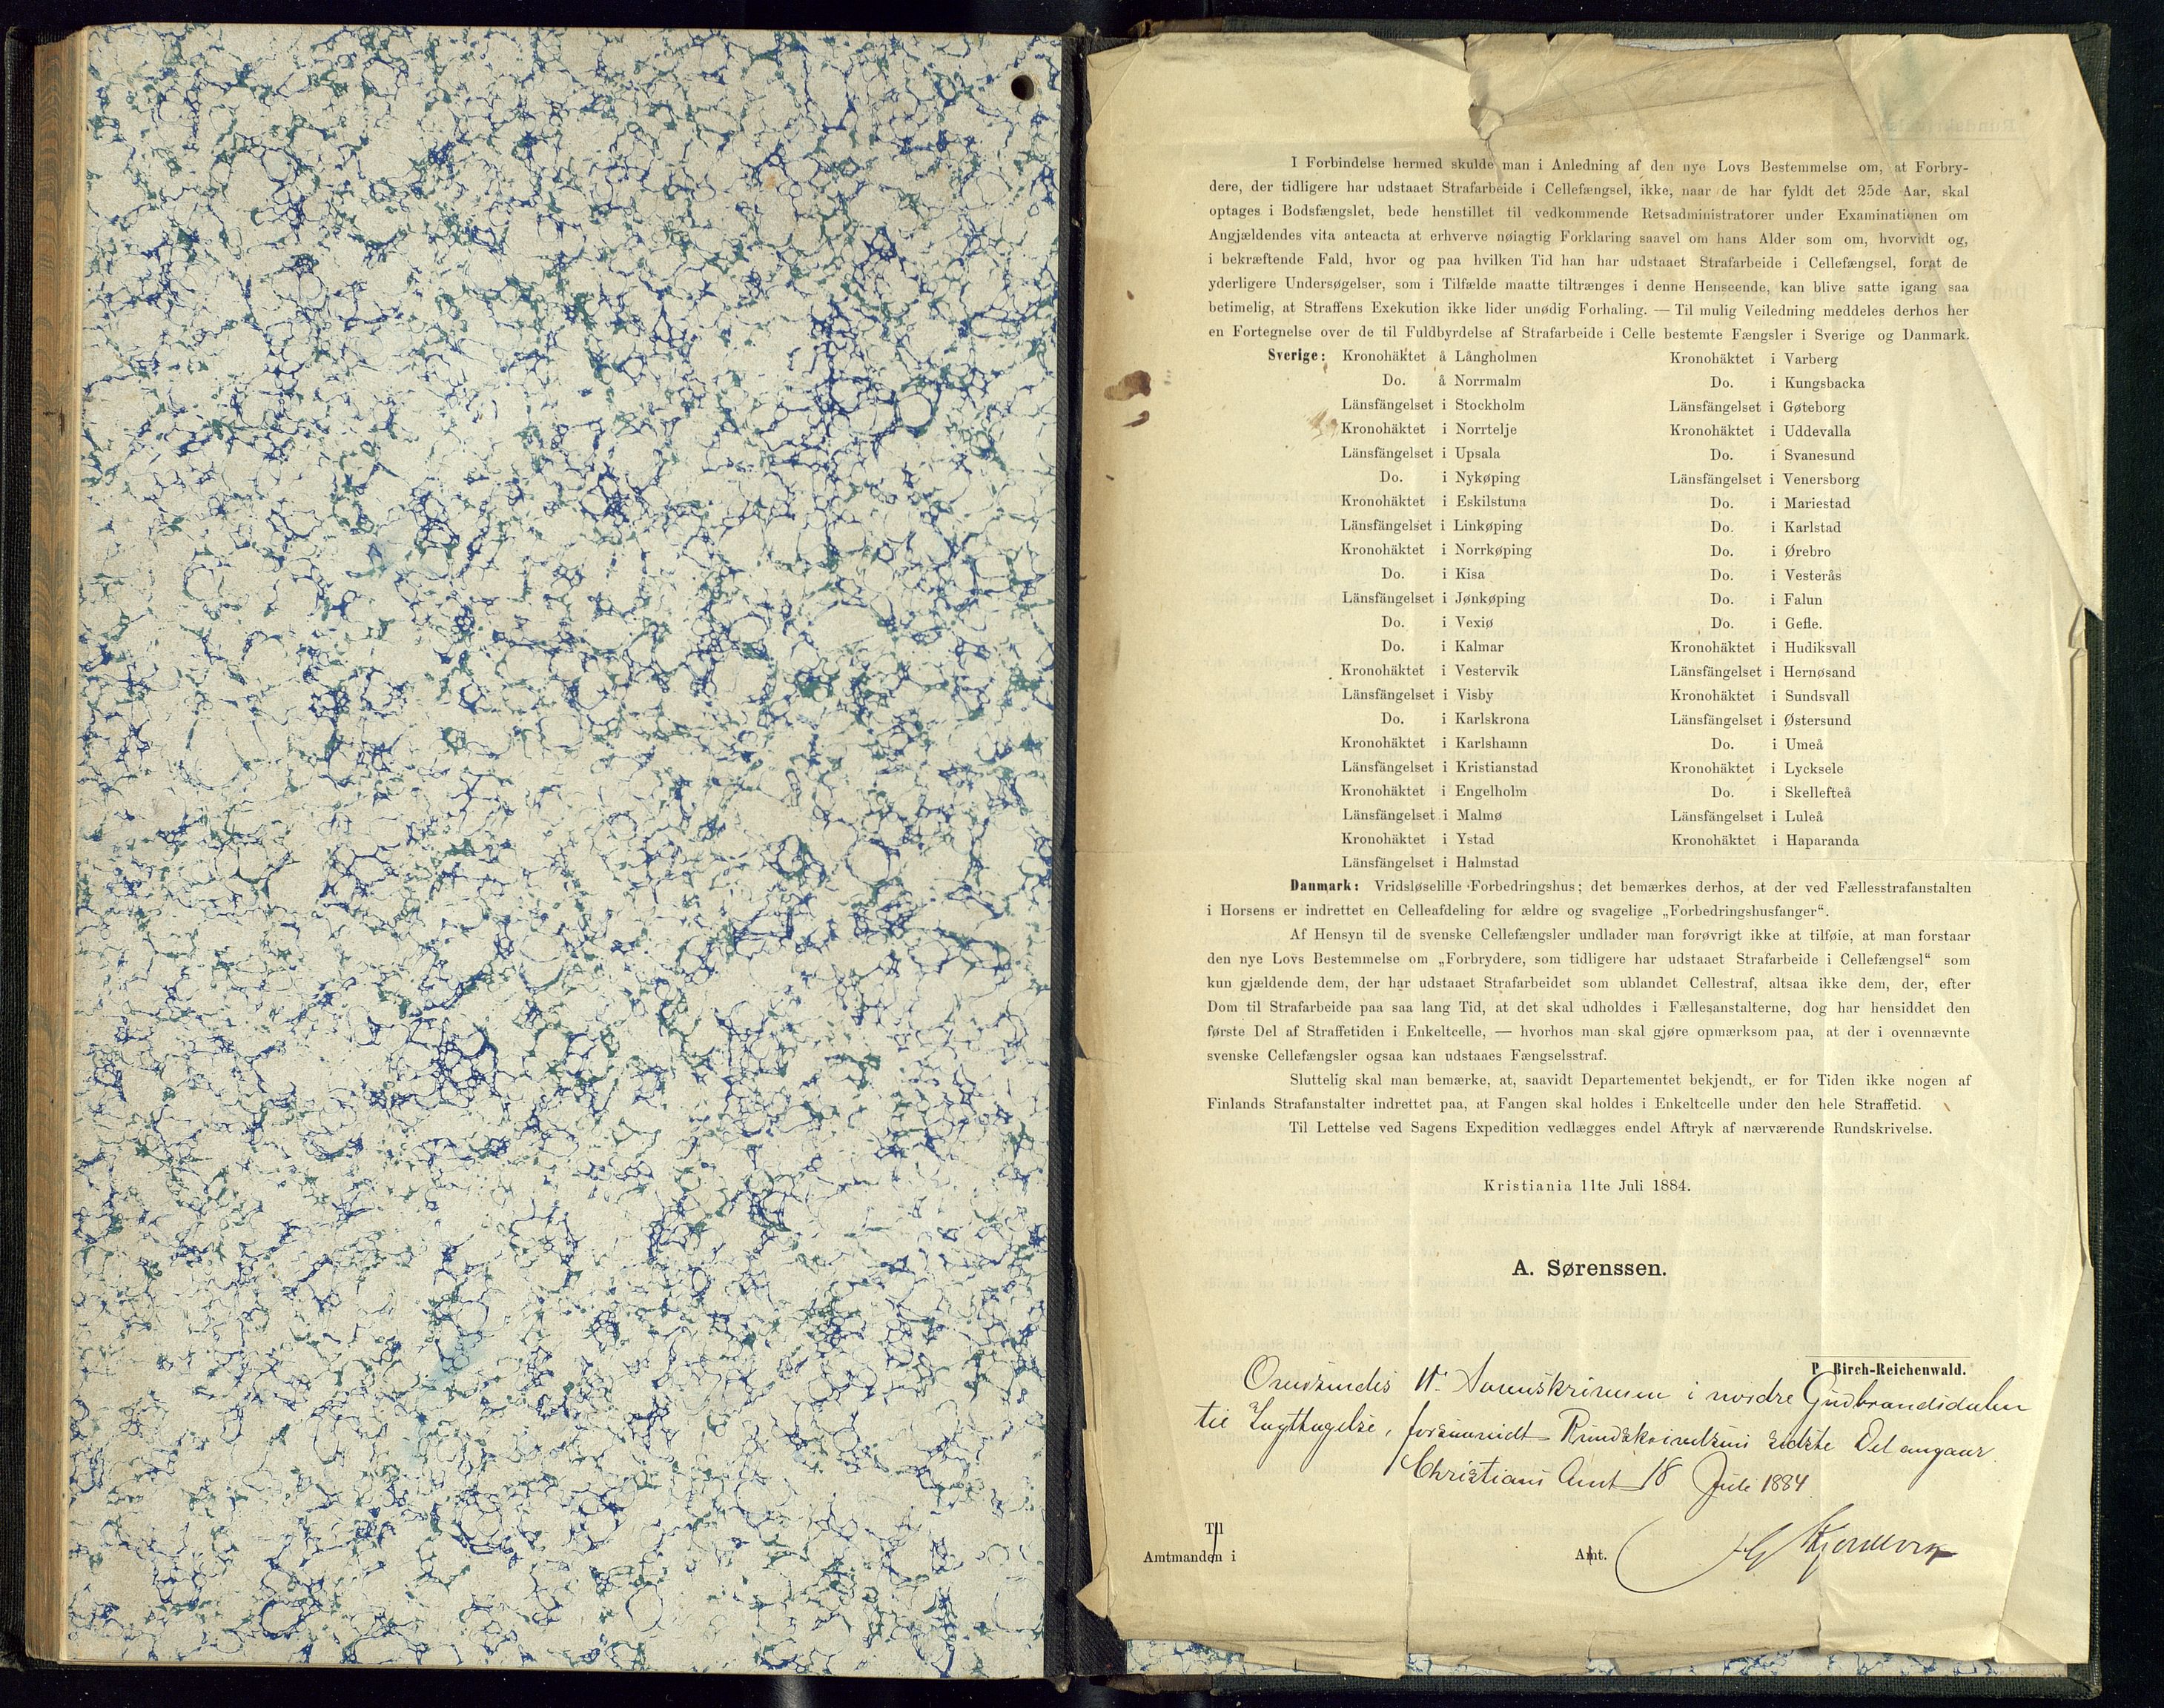 I Forbindelse hermed skulde man i Anledning af den nye Lovs Bestemmelse om, at Forbry-
dere, der tidligere har udstaaet Strafarbeide i Cellefængsel, ikke, naar de har fyldt det 25de Aar, skal
optages i Bodsfængslet, bede henstillet til vedkommende Retsadministratorer under Examinationen om
Angjældendes vita anteacta at erhverve nøiagtig Forklaring saavel om hans Alder som om, hvorvidt og,
i bekræftende Fald, hvor og paa hvilken Tid han har udstaaet Strafarbeide i Cellefængsel, forat de
yderligere Undersøgelser, som i Tilfælde maatte tiltrænges i denne Henseende, kan blive satte igang saa
betimelig, at Straffens Exekution ikke lider unødig Forhaling. — Til mulig Veiledning meddeles derhos her
en Fortegnelse over de til Fuldbyrdelse af Strafarbeide i Celle bestemte Fængsler i Sverige og Danmark.
Sverige: Kronohäktet å Långholmen
Do. å Norrmalm
Länsfängelset i Stockholm
Kronohäktet i Norrtelje
Länsfängelset i Upsala
Do. i Nykøping
Kronohäktet i Eskilstuna
Länsfängelset i Linkøping
Kronohäktet i Norrkøping
Do. i Kisa
Länsfängelset i Jønkøping
Do. i Vexiø
Do. i Kalmar
Kronohäktet i Vestervik
Länsfängelset i Visby
Do. i Karlskrona
Kronohäktet i Karlshamn
Länsfängelset i Kristianstad
Kronohäktet i Engelholm
Länsfängelset i Malmø
Kronohäktet i Ystad
Länsfängelset i Halmstad
Kronohäktet i Varberg
Do. i Kungsbacka
Länsfängelset i Gøteborg
Kronohäktet i Uddevalla
Do. i Svanesund
Länsfängelset i Venersborg
Do. i Mariestad
Do. i Karlstad
Do. i Ørebro
Do. i Vesterås
Do. i Falun
Do. i Gefle.
Kronohäktet i Hudiksvall
Länsfängelset i Hernøsand
Kronohäktet i Sundsvall
Länsfängelset i Østersund
Do. i Umeå
Kronohäktet i Lycksele
Do. i Skellefteå
Länsfängelset i Luleå
Kronohäktet i Haparanda
Danmark: Vridsløselille Forbedringshus; det bemærkes derhos, at der ved Fællesstrafanstalten
i Horsens er indrettet en Celleafdeling for ældre og svagelige „Forbedringshusfanger“.
Af Hensyn til de svenske Cellefængsler undlader man forøvrigt ikke at tilføie, at man forstaar
den nye Lovs Bestemmelse om „Forbrydere, som tidligere har udstaaet Strafarbeide i Cellefængsel“ som
kun gjældende dem, der har udstaaet Strafarbeidet som ublandet Cellestraf, altsaa ikke dem, der, efter
Dom til Strafarbeide paa saa lang Tid, at det skal udholdes i Fællesanstalterne, dog har hensiddet den
første Del af Straffetiden i Enkeltcelle, — hvorhos man skal gjøre opmærksom paa, at der i ovennævnte
svenske Cellefængsler ogsaa kan udstaaes Fængselsstraf.
Sluttelig skal man bemærke, at, saavidt Departementet bekjendt, er for Tiden ikke nogen af
Finlands Strafanstalter indrettet paa, at Fangen skal holdes i Enkeltcelle under den hele Straffetid.
Til Lettelse ved Sagens Expedition vedlægges endel Aftryk af nærværende Rundskrivelse.
Kristiania 11te Juli 1884.
A. Sørenssen.
P. Birch-Reichenwald.
Omsendes Hr. Sorenskriveren i nordre Gudbrandsdalen
til Iagttagelse, forsaavidt Rundskrivelsens sidste Del angaar.
Christians Amt 18 Juli 1884.
Til
Amtmanden i
Amt.